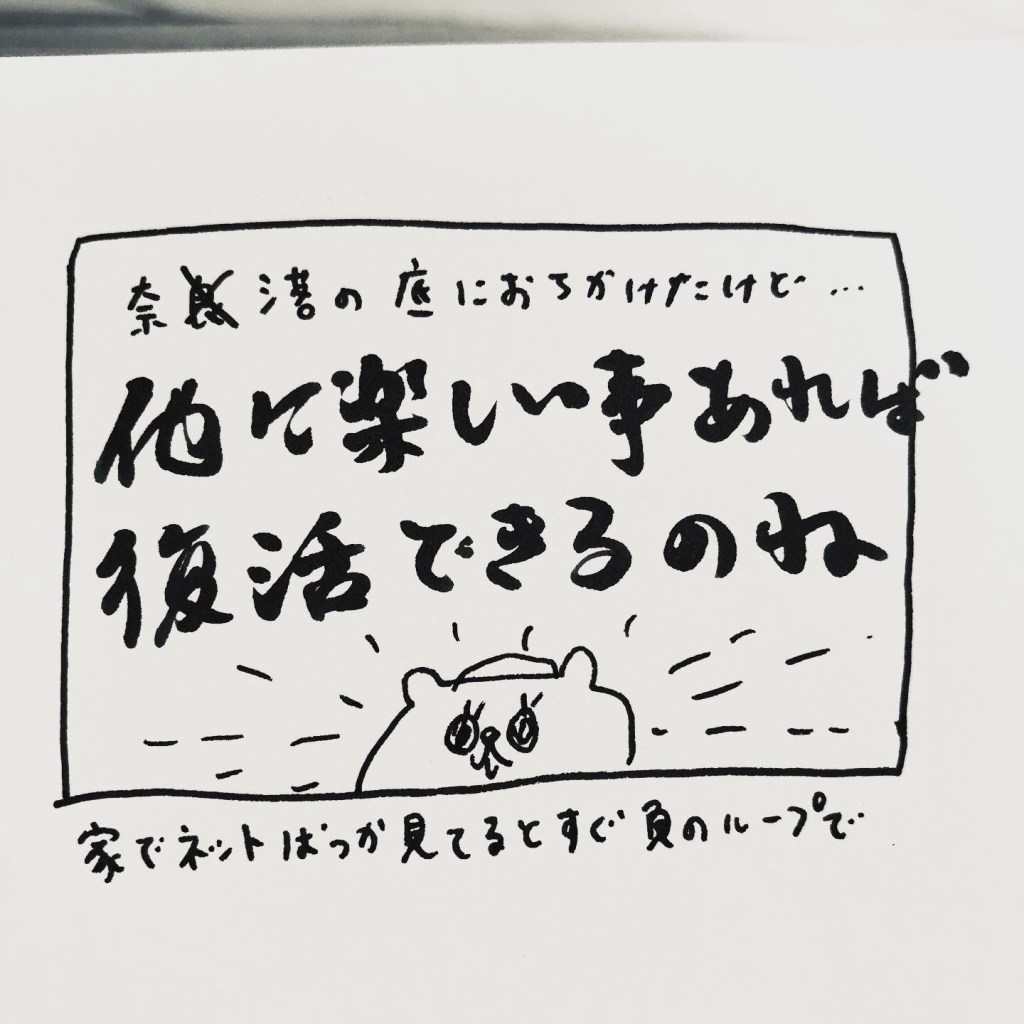 奈落の底におちかけたけど…
他に楽しい事あれば
復活できるのね
家でネットばっか見てるとすぐ負のループで